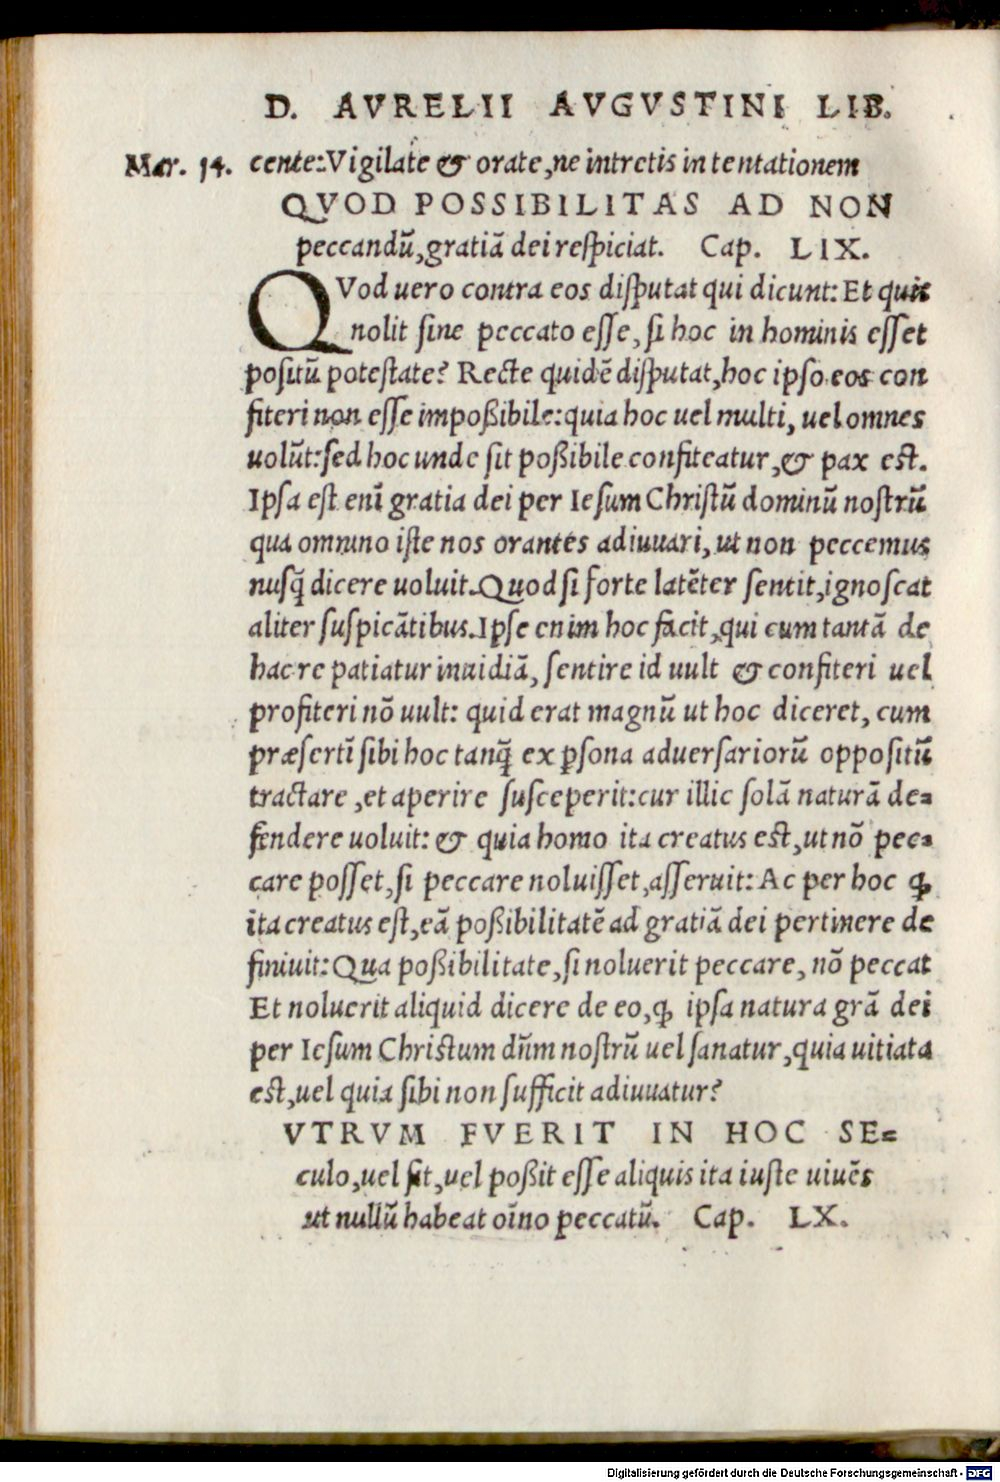 D. AVRELII AVGVSTINI LIB.
Mar. 14. cente: Vigilate & orate, ne intretis in tentationem
QVOD POSSIBILITAS AD NON
peccandū, gratiā dei respiciat. Cap. LIX.
QVod uero contra eos disputat qui dicunt: Et quis
nolit sine peccato esse, si hoc in hominis esset
positū potestate? Recte quidē disputat, hoc ipso eos con
fiteri non esse impoßibile: quia hoc uel multi, uel omnes
uolūt: sed hoc unde sit poßibile confiteatur, & pax est.
Ipsa est enī gratia dei per Iesum Christū dominū nostrū
qua omnino iste nos orantes adiuuari, ut non peccemus
nusq̄ dicere uoluit. Quod si forte latēter sentit, ignoscat
aliter suspicātibus. Ipse enim hoc facit, qui cum tantā de
hac re patiatur inuidiā, sentire id uult & confiteri uel
profiteri nō uult: quid erat magnū ut hoc diceret, cum
præsertī sibi hoc tanq̄ ex ꝑsona aduersariorū oppositū
tractare, et aperire susceperit: cur illic solā naturā de=
fendere uoluit: & quia homo ita creatus est, ut nō pec=
care posset, si peccare noluisset, asseruit: Ac per hoc ꝙ
ita creatus est, eā poßibilitatē ad gratiā dei pertinere de
finiuit: Qua poßibilitate, si noluerit peccare, nō peccat
Et noluerit aliquid dicere de eo, ꝙ ipsa natura grā dei
per Iesum Christum dn̄m nostrū uel sanatur, quia uitiata
est, uel quia sibi non sufficit adiuuatur?
VTRVM FVERIT IN HOC SE=
culo, uel sit, uel poßit esse aliquis ita iuste uiuēs
ut nullū habeat oīno peccatū. Cap. LX.
Digitalisierung gefördert durch die Deutsche Forschungsgemeinschaft - DFG